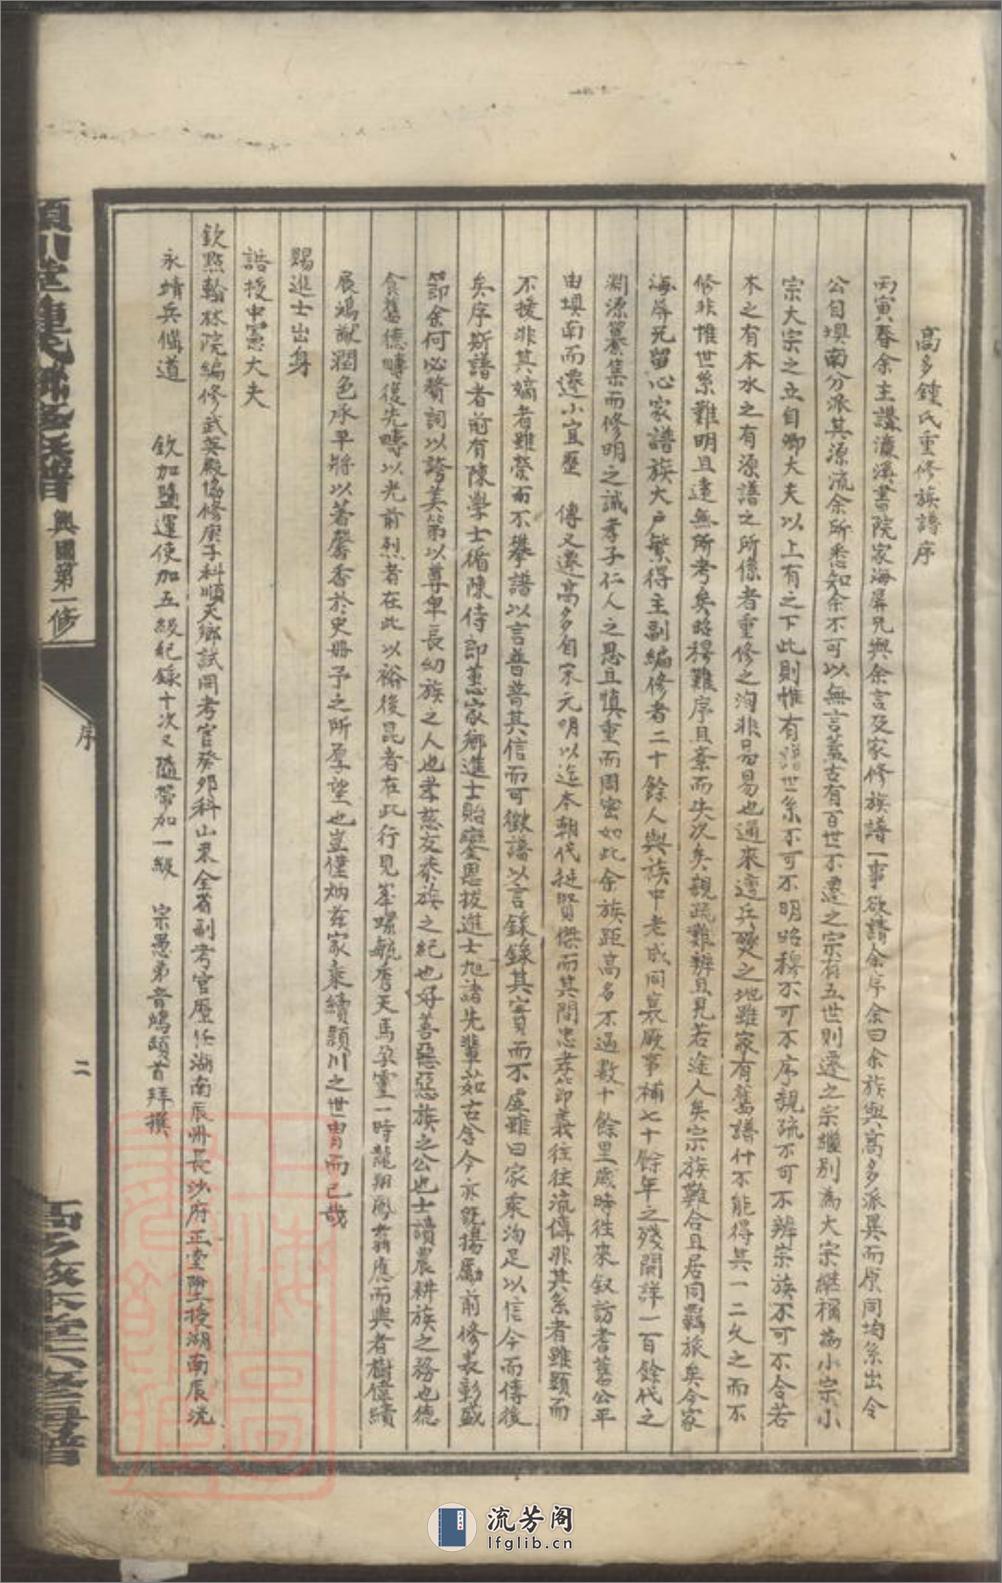 高多鍾氏重修族譜序
丙寅春余主講濂溪書院家海屏兄與余言及家修族譜一事欲請余序余曰余族與高多派異而原同均系出令
公自壩南分派其源流余所悉知余不可以無言蓋古有百世不遷之宗有五世則遷之宗繼別為大宗繼禰為小宗小
宗大宗之立自卿大夫以上有之下此則惟有譜世系不可不明昭穆不可不序親疏不可不辨宗族不可不合若
木之有本水之有源譜之所係者重修之洵非易易也邇來遭兵燹之地雖家有舊譜什不能得其一二久之而不
修非惟世系難明且遠無所考矣昭穆難序且紊而失次矣親疏難辨且見若途人矣宗族難合且居同羈旅矣今家
海屏兄留心家譜族大戶繁得主副編修者二十餘人與族中老成同襄厥事補七十餘年之殘闕詳一百餘代之
淵源纂集而修明之誠孝子仁人之思且慎重而周密如此余族距高多不過數十餘里歲時往來叙訪耆舊公平
由壩南而遷小宜歷 傳又遷高多自宋元明以迄本朝代挺賢傑而其間忠孝節義往往流傳非其系者雖顯而
不援非其嫡者雖榮而不攀譜以言普普其信而可徵譜以言錄錄其實而不虛雖曰家乘洵足以信今而傳後
矣序斯譜者前有陳學士循陳侍郎蕙家鄉進士貽鑾恩拔進士旭諸先輩茹古含今亦既揚勵前修表彰盛
節余何必贅詞以誇美第以尊卑長幼族之人也孝慈友恭族之紀也好善惡惡族之公也士讀農耕族之務也德
食舊德疇復先疇以光前烈者在此以裕後昆者在此行見峯螺毓秀天馬孕靈一時龍翔鳳翥應而興者樹偉績
展鴻猷潤色承平將以著馨香於史冊予之所厚望也豈僅炳茲家乘續潁川之世胄而已哉
賜進士出身
誥授中憲大夫
欽點翰林院編修武英殿協修庚子科順天鄉試同考官癸卯科山東全省副考官歷任湖南辰州長沙府正堂陞授湖南辰沅
永靖兵備道 欽加鹽運使加五級紀錄十次又隨帶加一級 宗愚弟音鴻頓首拜撰
潁川堂鍾氏 族譜 興國第一修
序
二
流芳阁
lfglib.cn